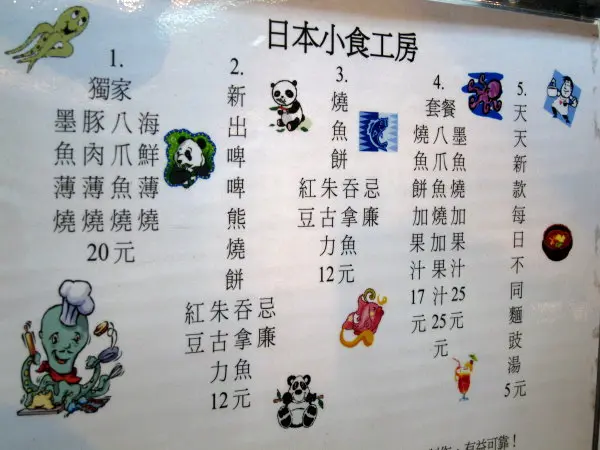 日本小食工房
1.
獨家
墨魚薄燒
豚肉薄燒
八爪魚燒
海鮮薄燒
20元
2.
新出啤啤熊燒餅
紅豆
朱古力
吞拿魚
忌廉
12元
3.
燒魚餅
紅豆
朱古力
吞拿魚
忌廉
12元
4.
套餐
燒魚餅加果汁17元
八爪魚燒加果汁25元
墨魚燒加果汁25元
5.
天天新款每日不同麵豉湯5元
有益可靠！